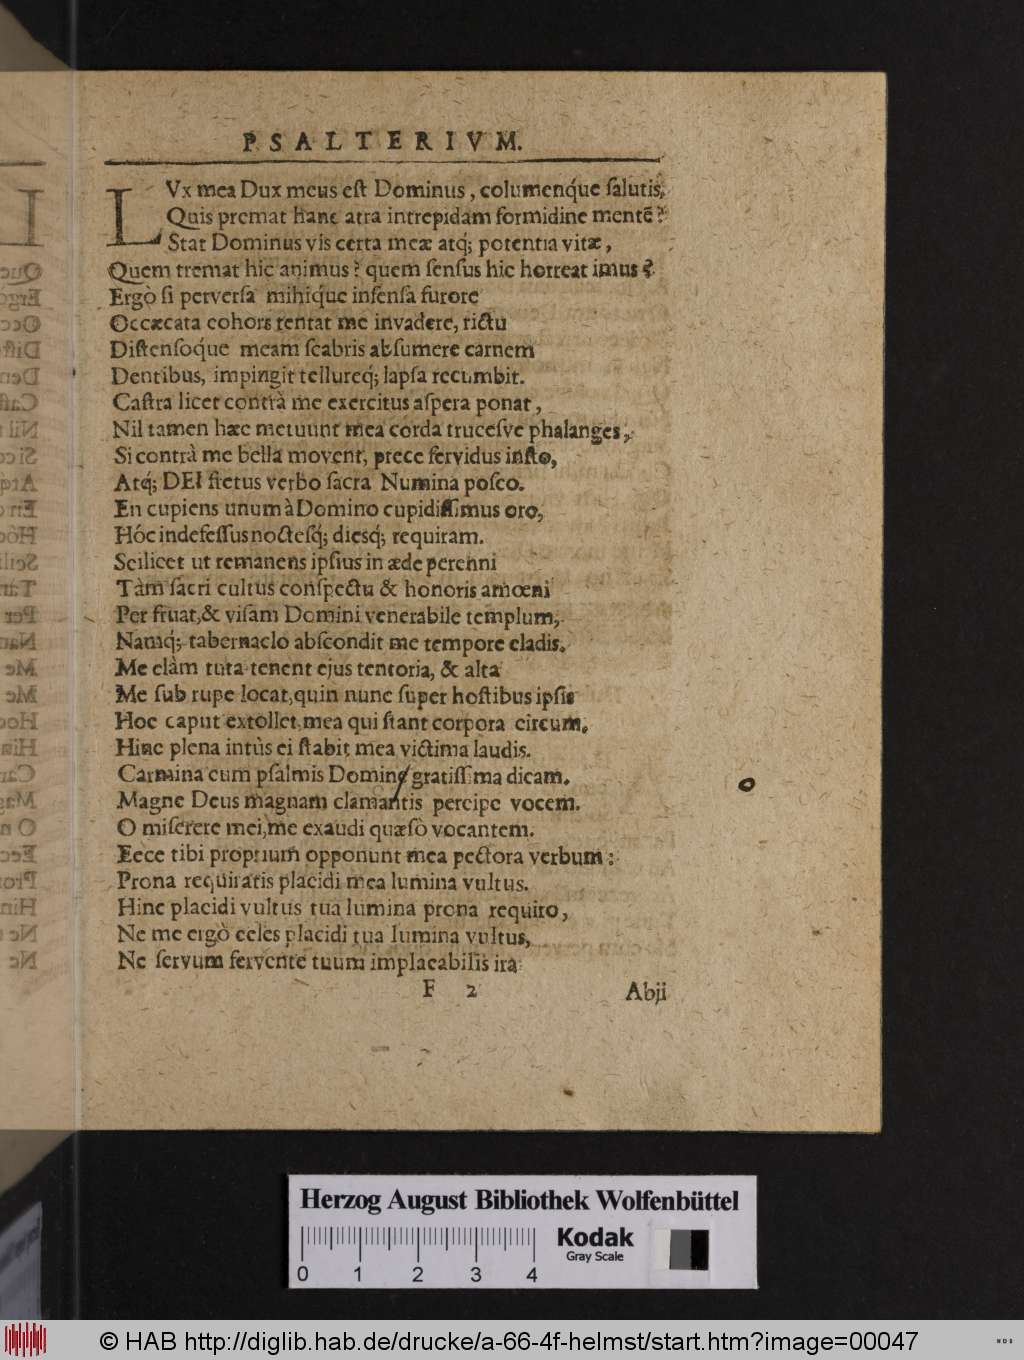 PSALTERIVM.
LVx mea Dux meus eſt Dominus, columenq́ue ſalutis,
Quis premat hanc atra intrepidam formidine mentē?
Stat Dominus vis certa meæ atq; potentia vitæ,
Quem tremat hic animus? quem ſenſus hic horreat imus?
Ergò ſi perverſa mihiq́ue infenſa furore
Occæcata cohors tentat me invadere, rictu
Diſtenſoq́ue meam ſcabris abſumere carnem
Dentibus, impingit tellureq; lapſa recumbit.
Caſtra licet contrà me exercitus aſpera ponat,
Nil tamen hæc metuunt mea corda truceſve phalanges,
Si contrà me bella movent, prece fervidus inſto,
Atq; DEI fretus verbo ſacra Numina poſco.
En cupiens unum à Domino cupidiſſimus oro,
Hóc indefeſſus nocteſq; dieſq; requiram.
Scilicet ut remanens ipſius in æde perenni
Tàm ſacri cultus conſpectu & honoris amœni
Per fruar, & viſam Domini venerabile templum,
Namq; tabernaclo abſcondit me tempore cladis.
Me clàm tuta tenent ejus tentoria, & alta
Me ſub rupe locat, quin nunc ſuper hoſtibus ipſis
Hoc caput extollet, mea qui ſtant corpora circum.
Hinc plena intùs ei ſtabit mea victima laudis.
Carmina cum pſalmis Domino gratiſſima dicam.
Magne Deus magnam clamantis percipe vocem.
O miſerere mei, me exaudi quæſò vocantem.
Ecce tibi proprium opponunt mea pectora verbum:
Prona requiratis placidi mea lumina vultus.
Hinc placidi vultus tua lumina prona requiro,
Ne me ergò celes placidi tua lumina vultus,
Ne ſervum fervente tuum implacabilis ira
F 2 Abji
Herzog August Bibliothek Wolfenbüttel
Kodak
Gray Scale
0 1 2 3 4
© HAB http://diglib.hab.de/drucke/a-66-4f-helmst/start.htm?image=00047